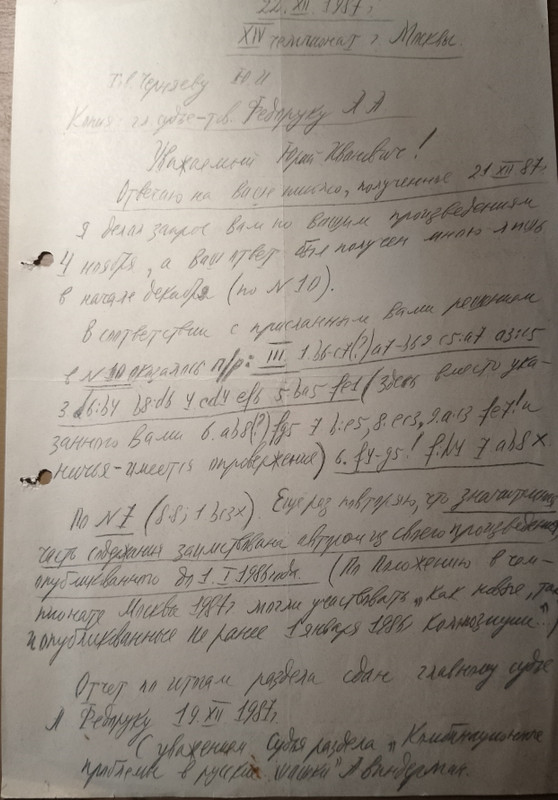 22. XII. 1987 г
XIV чемпионат г Москвы.
Тов. Черняеву Ю. И
Копия: гл судье-тов. Федоруку А А
Уважаемый Юрий Иванович!
Отвечаю на Ваше письмо, полученное 21 XII 87 г.
Я делал запрос вам по вашим произведениям
4 ноября, а ваш ответ был получен мною лишь
в начале декабря (по N 10).
В соответствии с присланным вами решением
в N 10 оказалось п/р: III 1. b6-c7(?) a7-b6 2 c5:a7 a3:c5
(здесь вместо ука-
занного Вами 6. ab8(?) fg5 7
ничья-имеется опровержение) 6. f4-g5! f:h4 7 ab8 X
По N 7 (8:8; 1 Еще раз повторяю, что значительная
часть содержания заимствована автором из своего произведения,
опубликованного до 1. I 1986 года. (По Положению в чем-
пионате Москвы 1987 г могли участвовать „Как новые, так
и опубликованные не ранее 1 января 1986 композиции".)
Отчет по итогам раздела сдан главному судье
А Федоруку 19. XII 1987 г
С уважением Судья раздела „Комбинационные
проблемы в русские шашки" А Виндерман.